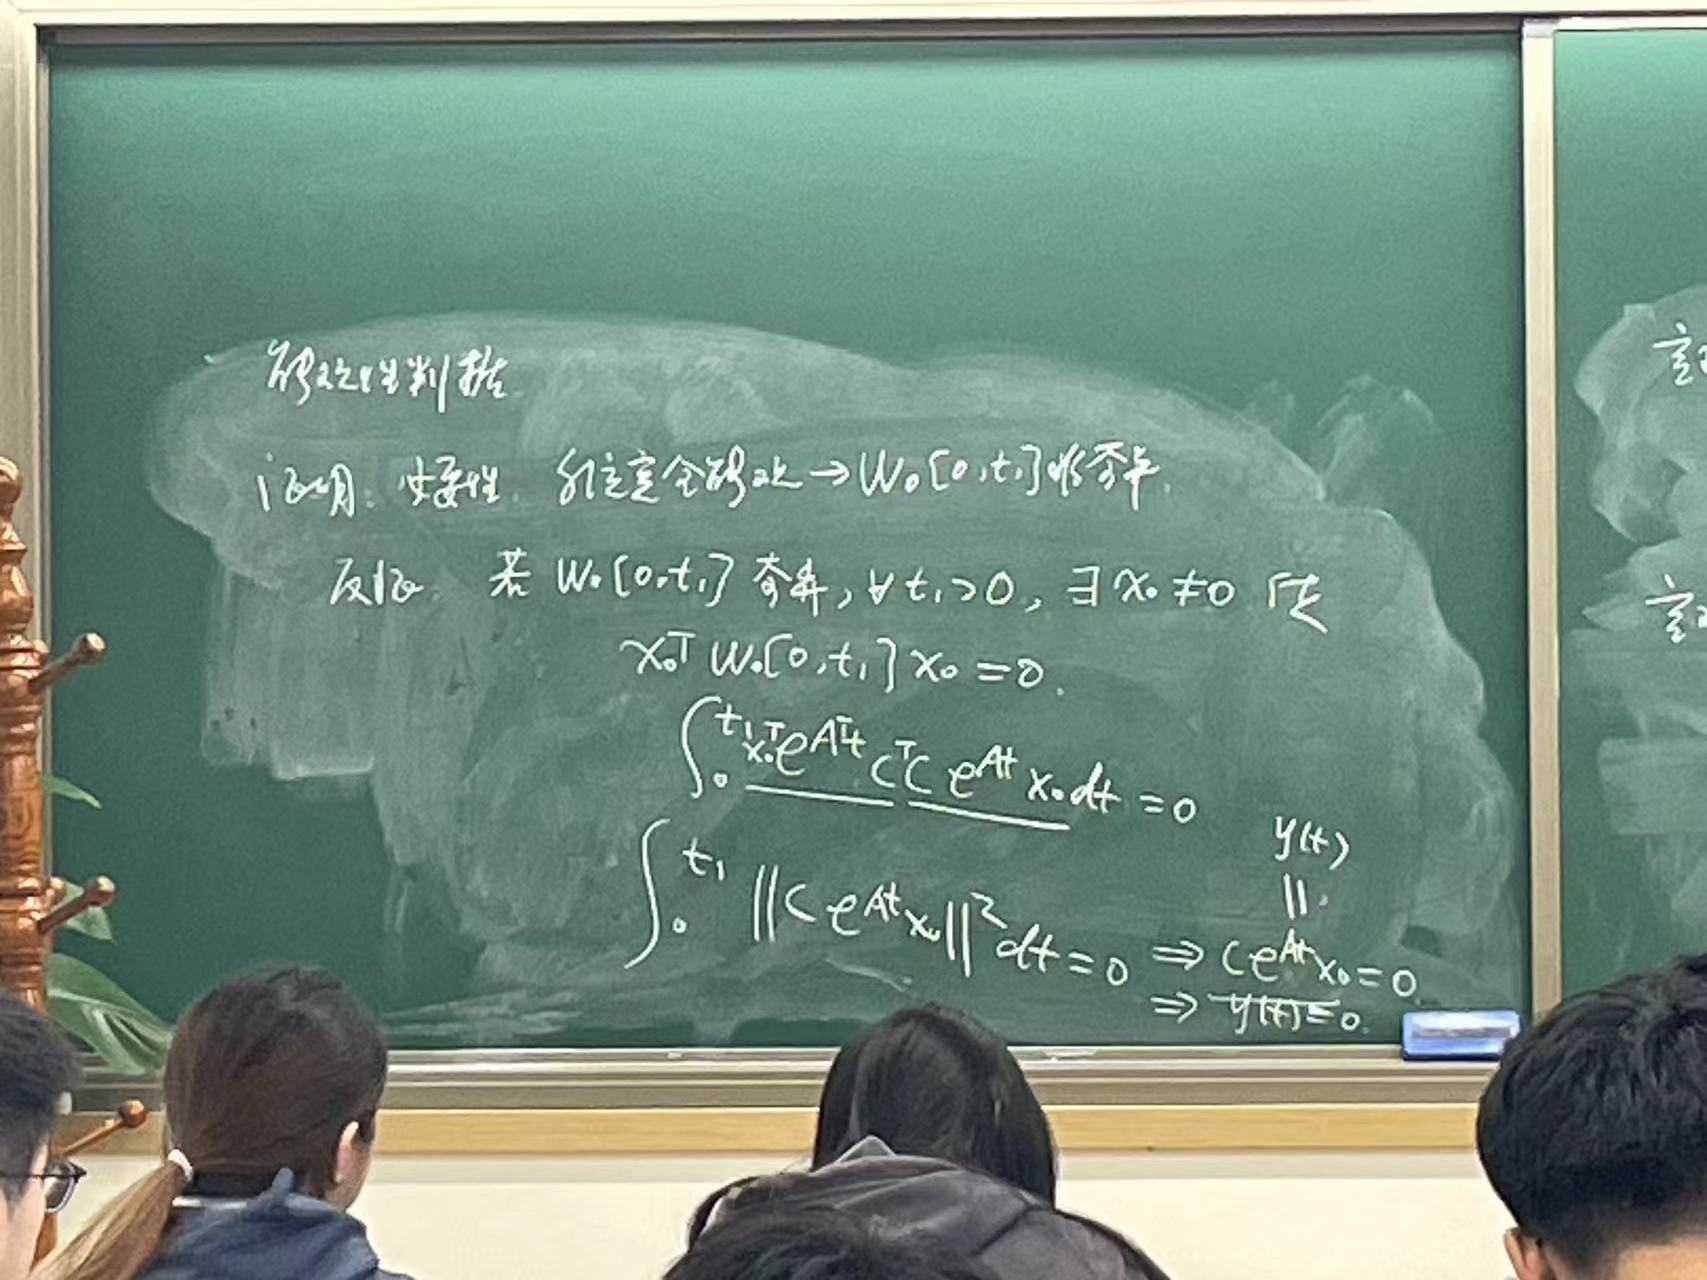 能观性判据
证明. 必要性. 系统完全能观→W₀[0,t₁]非奇异.
反证. 若 W₀[0,t₁] 奇异, ∀t₁>0, ∃x₀≠0 使
x₀ᵀ W₀[0,t₁] x₀ = 0.
∫₀^t₁ x₀ᵀ e^Aᵀt Cᵀ C e^At x₀ dt = 0
y(t)
||
∫₀^t₁ ||C e^At x₀||² dt = 0 ⇒ C e^At x₀ = 0
⇒ y(t) = 0.